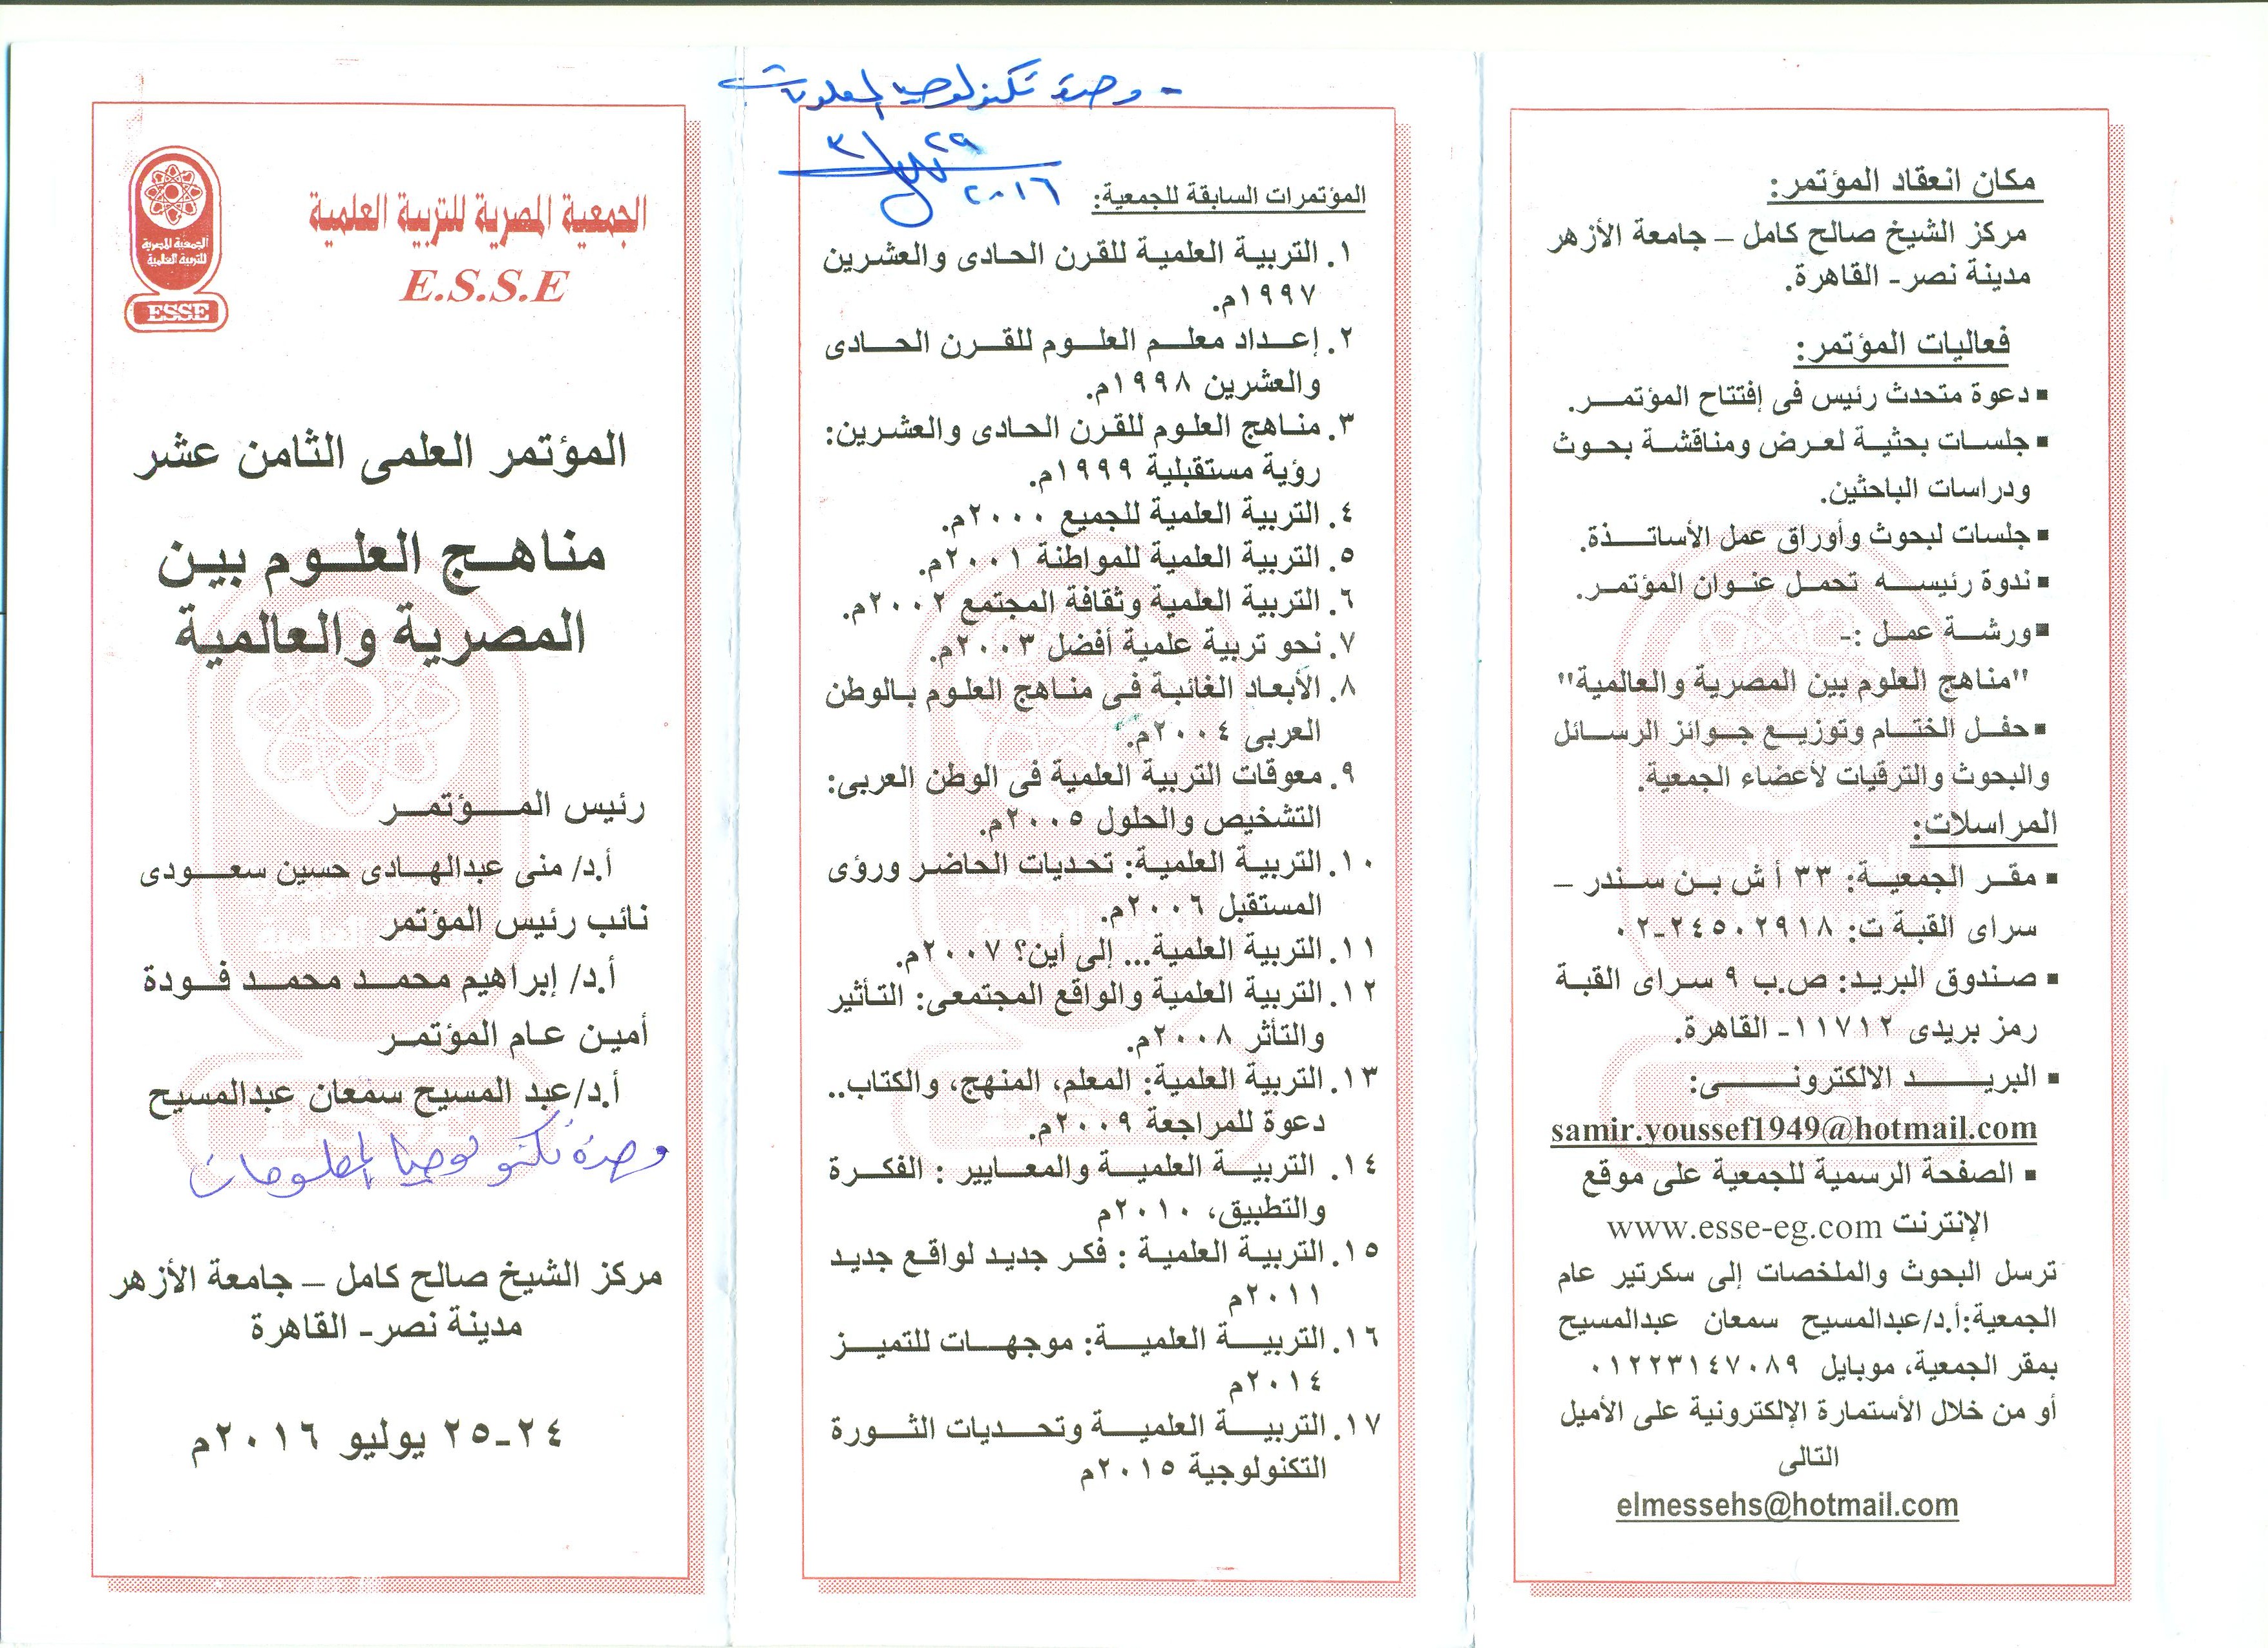 مكان انعقاد المؤتمر:
مركز الشيخ صالح كامل – جامعة الأزهر
مدينة نصر- القاهرة.
فعاليات المؤتمر:
▪ دعوة متحدث رئيس فى إفتتاح المؤتمر.
▪ جلسات بحثية لعرض ومناقشة بحوث
ودراسات الباحثين.
▪ جلسات لبحوث وأوراق عمل الأساتذة.
▪ ندوة رئيسه تحمل عنوان المؤتمر.
▪ ورشة عمل :-
"مناهج العلوم بين المصرية والعالمية"
▪ حفل الختام وتوزيع جوائز الرسائل
والبحوث والترقيات لأعضاء الجمعية.
المراسلات:
▪ مقر الجمعية: ٣٣ أ ش بن سندر –
سراى القبة ت: ٢٤٥٠٢٩١٨-٠٢
▪ صندوق البريد: ص.ب ٩ سراى القبة
رمز بريدى ١١٧١٢- القاهرة.
▪ البريد الالكترونى:
samir.youssef1949@hotmail.com
▪ الصفحة الرسمية للجمعية على موقع
الإنترنت www.esse-eg.com
ترسل البحوث والملخصات إلى سكرتير عام
الجمعية:أ.د/عبدالمسيح سمعان عبدالمسيح
بمقر الجمعية، موبايل ٠١٢٢٣١٤٧٠٨٩
أو من خلال الأستمارة الإلكترونية على الأميل
التالى
elmessehs@hotmail.com
- وحدة تكنولوجيا المعلومات
٢٩
٣
٢٠١٦
المؤتمرات السابقة للجمعية:
١. التربية العلمية للقرن الحادى والعشرين
١٩٩٧م.
٢. إعداد معلم العلوم للقرن الحادى
والعشرين ١٩٩٨م.
٣. مناهج العلوم للقرن الحادى والعشرين:
رؤية مستقبلية ١٩٩٩م.
٤. التربية العلمية للجميع ٢٠٠٠م.
٥. التربية العلمية للمواطنة ٢٠٠١م.
٦. التربية العلمية وثقافة المجتمع ٢٠٠٢م.
٧. نحو تربية علمية أفضل ٢٠٠٣م.
٨. الأبعاد الغائبة فى مناهج العلوم بالوطن
العربى ٢٠٠٤م.
٩. معوقات التربية العلمية فى الوطن العربى:
التشخيص والحلول ٢٠٠٥م.
١٠. التربية العلمية: تحديات الحاضر ورؤى
المستقبل ٢٠٠٦م.
١١. التربية العلمية... إلى أين؟ ٢٠٠٧م.
١٢. التربية العلمية والواقع المجتمعى: التأثير
والتأثر ٢٠٠٨م.
١٣. التربية العلمية: المعلم، المنهج، والكتاب..
دعوة للمراجعة ٢٠٠٩م.
١٤. التربية العلمية والمعايير : الفكرة
والتطبيق، ٢٠١٠م
١٥. التربية العلمية : فكر جديد لواقع جديد
٢٠١١م
١٦. التربية العلمية: موجهات للتميز
٢٠١٤م
١٧. التربية العلمية وتحديات الثورة
التكنولوجية ٢٠١٥م
الجمعية المصرية للتربية العلمية
E.S.S.E
الجمعية المصرية
للتربية العلمية
ESSE
المؤتمر العلمى الثامن عشر
مناهج العلوم بين
المصرية والعالمية
رئيس المؤتمر
أ.د/ منى عبدالهادى حسين سعودى
نائب رئيس المؤتمر
أ.د/ إبراهيم محمد محمد فودة
أمين عام المؤتمر
أ.د/عبد المسيح سمعان عبدالمسيح
وحدة تكنولوجيا المعلومات
مركز الشيخ صالح كامل – جامعة الأزهر
مدينة نصر- القاهرة
٢٤-٢٥ يوليو ٢٠١٦م